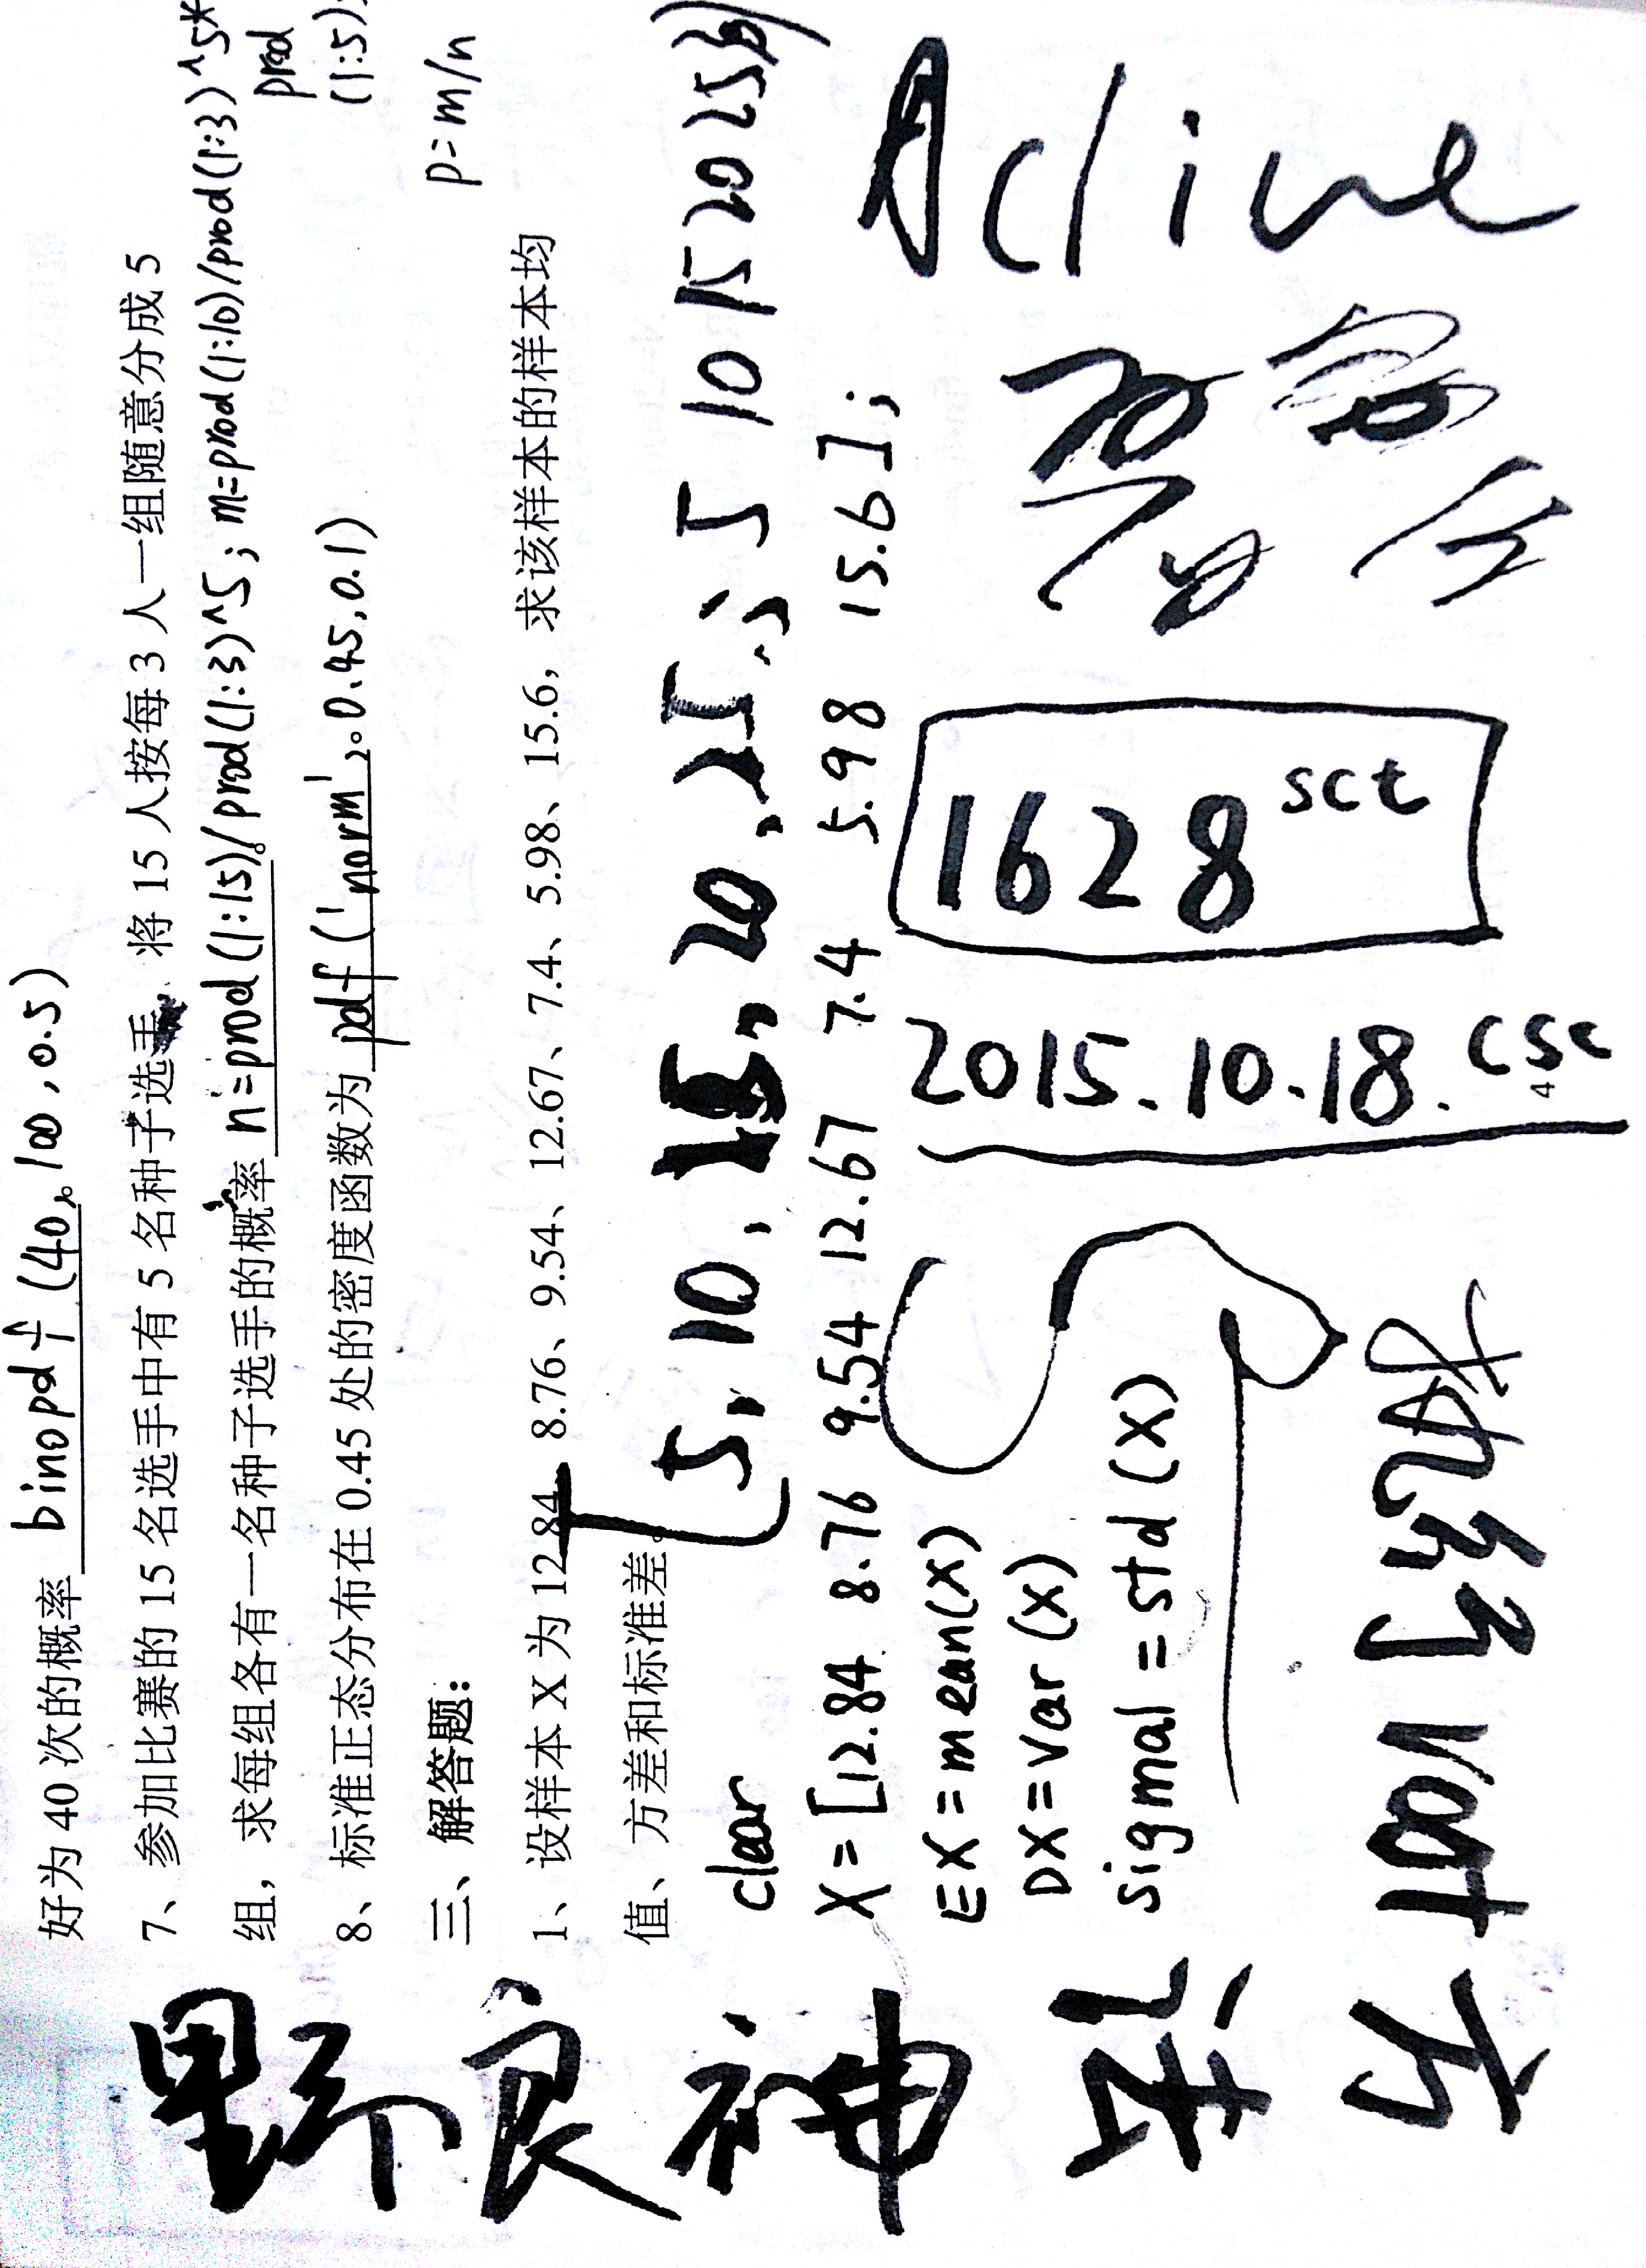 好为 40 次的概率 binopdf (40, 100, 0.5)
7、参加比赛的 15 名选手中有 5 名种子选手, 将 15 人按每 3 人一组随意分成 5
组, 求每组各有一名种子选手的概率 n=prod(1:15)/prod(1:3)^5; m=prod(1:10)/prod(1:3)^5*
prod
(1:5);
8、标准正态分布在 0.45 处的密度函数为 pdf('norm', 0.45, 0.1)
p=m/n
三、解答题:
1、设样本 X 为 12.84、8.76、9.54、12.67、7.4、5.98、15.6, 求该样本的样本均
值、方差和标准差。
[5, 10, 15, 20, 25, ; 5 10 15 20 25
clear
X=[12.84 8.76 9.54 12.67 7.4 5.98 15.6];
EX=mean(X)
DX=var(X)
sigmal=std(X)
1628 sct
2015.10.18. csc
4
野良神